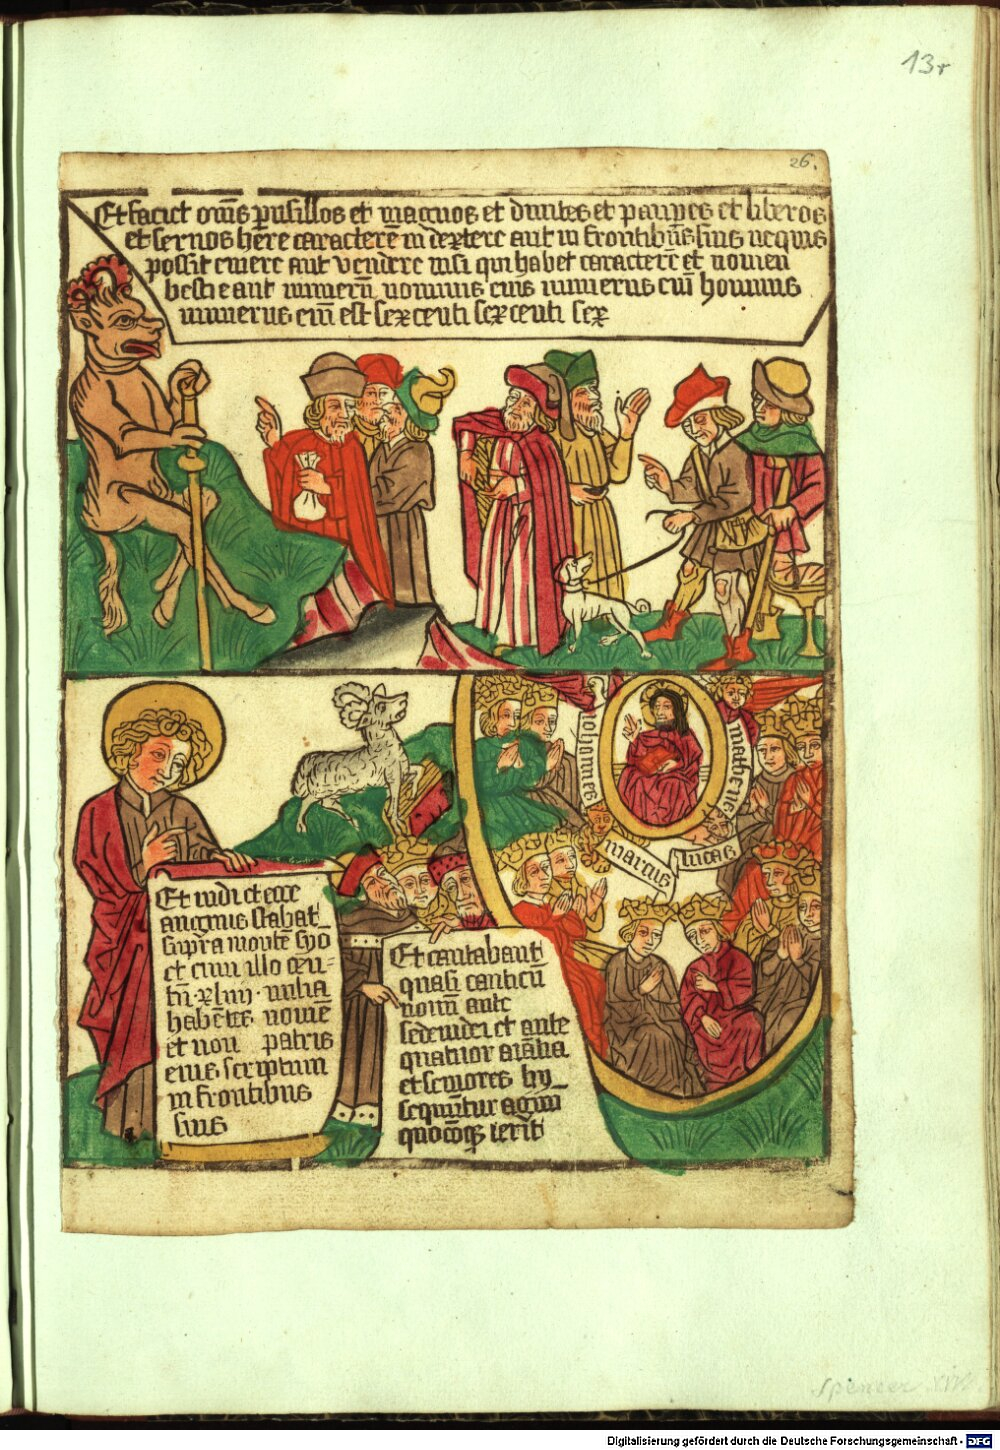 13r
26.
Et facit om̄s pusillos et magnos et diuites et paupes et liberos
et seruos h̄ere caracterē in dextere aut in frontibus̄ suis ne quis
possit emere aut vendere nisi qui habet caracterē et nomen
bestie aut numerū nominis eius numerus em̄ hominis
numerus em̄ est sexcenti sexcenti sex
Johannes
matheus
marcus
lucas
Et vidi et ecce
angnus stabat
supra montē syo
et cum illo cen=
tū · xliiii · milia
habētes nomē
et nou patris
eius scriptum
in frontibus
suis
Et cantabant
quasi canticū
nouū ante
sedem dei et ante
quatuor aīalia
et seniores hy
sequūtur agnū
quocōqꝫ ierit
Spencer
Digitalisierung gefördert durch die Deutsche Forschungsgemeinschaft - DFG